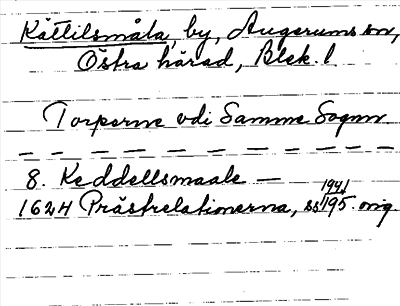 Kättilsmåla, by, Augerums sn,
Östra härad, Blek. l
Torperne vdi Samme Sognn
— — — — — — — — — —
8. Keddellsmaale —
1941
1624 Prästrelationerna, ss 195. orig.